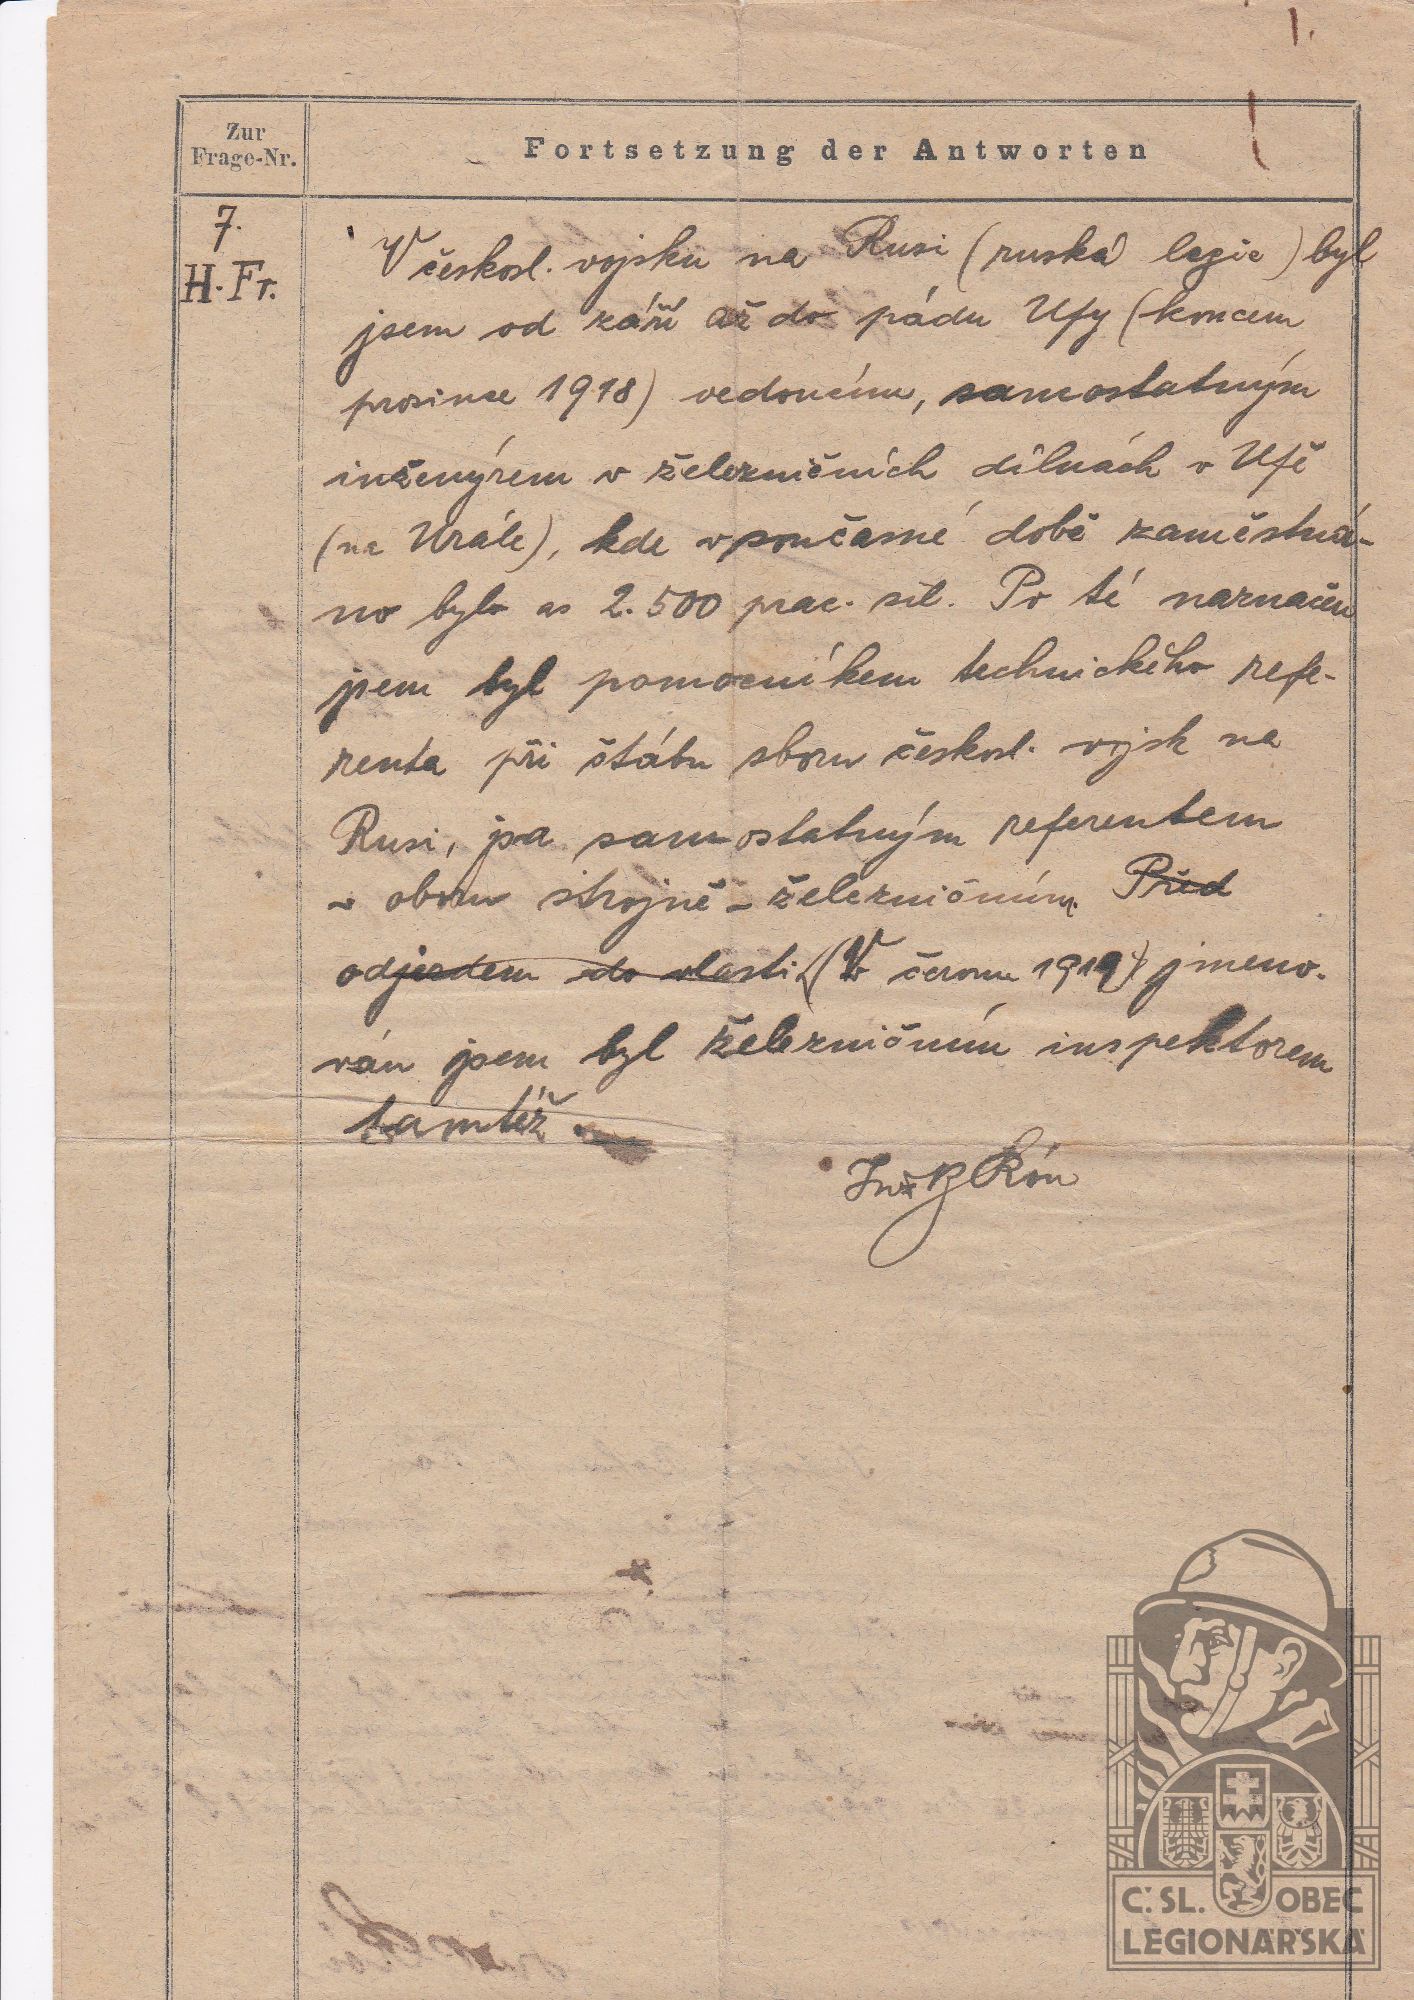 1.
Zur
Frage-Nr.
Fortsetzung der Antworten
7.
H. Fr.
V českosl. vojsku na Rusi (ruská legie) byl
jsem od září až do pádu Ufy (koncem
prosince 1918) vedoucím, samostatným
inženýrem v železničních dílnách v Ufě
(na Urále), kde v současné době zaměstná-
no bylo as 2.500 prac. sil. Po té naznačen
jsem byl pomocníkem technického refe-
renta při štábu sboru českosl. vojsk na
Rusi, jsa samostatným referentem
v oboru strojně-železničním. Před
odjezdem do vlasti (V červnu 1919) jmeno-
ván jsem byl železničním inspektorem
tamtéž.
Inž Rón
Č.SL. OBEC
LEGIONÁŘSKÁ